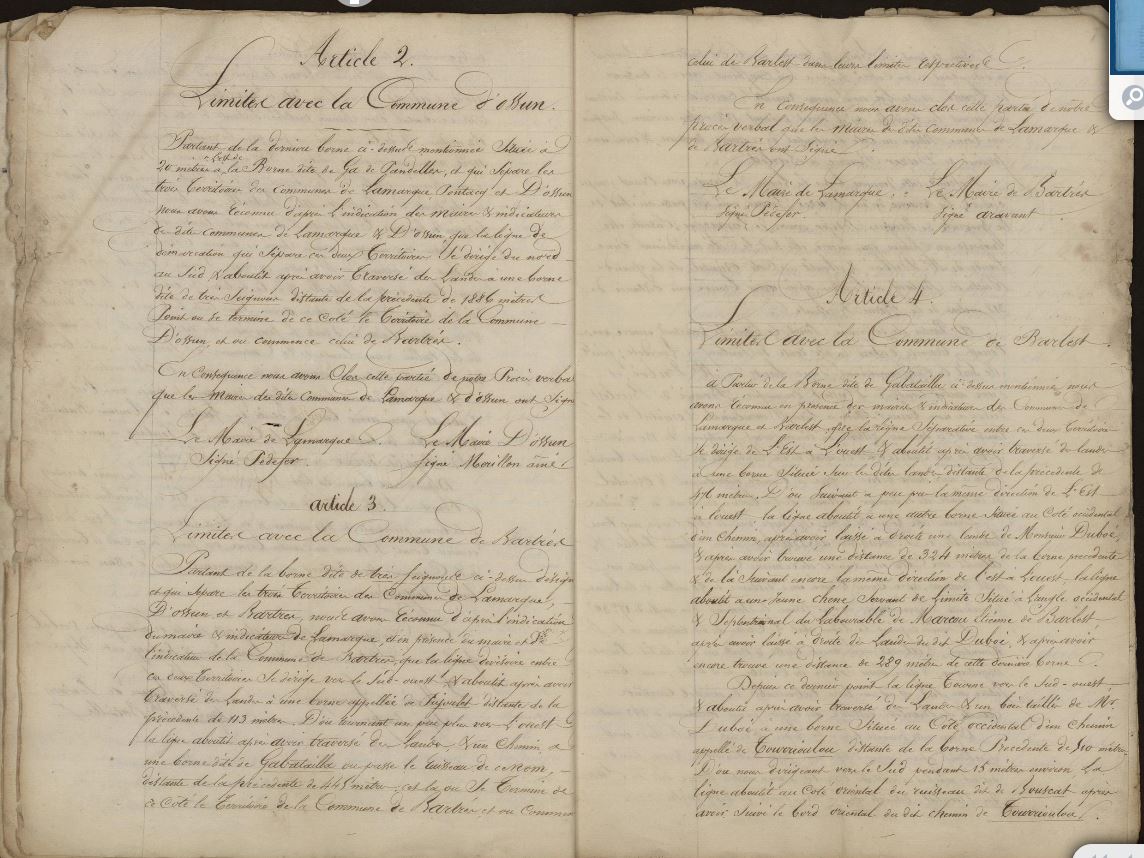 Article 2.
Limites avec la Commune d'ossun.
Partant de la dernière borne ci-dessus mentionnée Située à
20 mètres à l'est de la Borne dite de Ga de Pandelles, et qui Sépare les
trois Territoires des communes de Lamarque Pontacq et D'ossun
nous avons reconnu d'après l'indication des maires & indicateurs
de dites communes de Lamarque & D'ossun, que la ligne de
démarcation qui Sépare ces deux Territoires Se dirige du nord
au Sud & aboutit après avoir traversé des Landes à une borne
dite de tres Seignous distante de la précédente de 1886 mètres
Point ou se termine de ce Coté le Territoire de la Commune
D'ossun, et ou commence celui de Bartrès.
En Conséquence nous avons Clos cette partie de notre Procès verbal
que les Maires des dites Communes de Lamarque & d'ossun ont Signé
Le Maire de Lamarque. Le Maire D'ossun
Signé Pédefer. Signé Mouillon ainé.
article 3.
Limites avec la Commune de Bartrès
Partant de la borne dite de tres Seignous ci-dessus désignée
et qui Sépare les trois Territoires des Communes de Lamarque,
D'ossun et Bartres, nous avons reconnu d'après l'indication
du maire & indicateur de Lamarque, et en présence du maire et
l'indicateur de la Commune de Bartres, que la ligne divisoire entre
ces deux Territoires Se dirige vers le Sud-ouest & aboutit après avoir
traversé des Landes à une borne appellée de distante de la
précédente de 113 mètres. D'ou tournant un peu plus vers L'ouest
la ligne aboutit après avoir traversé des Landes & un Chemin, à
une borne dite de Gabatailla ou passe le ruisseau de ce nom,
distante de la précédente de 445 mètres, c'est la ou Se Termine de
ce Coté le Territoire de la Commune de Bartrès et ou Commence
celui de Barlest dans leurs limites respectives.
En Conséquence nous avons clos cette partie de notre
procès verbal que les maires des dites communes de Lamarque &
de Bartrès ont Signé.
Le Maire de Lamarque. Le Maire de Bartrès
Signé Pédefer. Signé aravant
Article 4.
Limites avec la Commune de Barlest.
à Partir de la Borne dite de Gabatailla ci-dessus mentionnée nous
avons reconnu en présence des maires & indicateurs des Communes de
Lamarque et Barlest, que la ligne Séparative entre ces deux Territoires
Se dirige de L'Est à L'ouest & aboutit après avoir traversé des landes
à une borne Située Sur les dites landes distante de la précédente de
476 mètres. D'ou Suivant à peu près la même direction de L'Est
à l'ouest la ligne aboutit à une autre borne Située au Coté occidental
d'un Chemin, après avoir laissé à droite une lande de Monsieur Duboé,
& après avoir trouvé une distance de 324 mètres de la borne précédente
& de là Suivant encore la même direction de l'est à L'ouest, la ligne
aboutit à un Jeune chêne Servant de Limite Situé à L'angle occidental
& Septentrional du Labourable de Marcou Etienne de Barlest
après avoir laissé à droite des Landes du dit Duboé, & après avoir
encore trouvé une distance de 289 mètres de cette dernière borne.
Depuis ce dernier point la ligne Tourne vers le Sud-ouest
& aboutit après avoir traversé des Landes & un bois taillis de Mr.
Duboé à une borne Située au Coté occidental d'un Chemin
appellé de Couvrioulou distante de la borne Précédente de mètres.
D'ou nous dirigeant vers le Sud pendant 15 mètres environ La
ligne aboutit au Coté oriental du ruisseau dit de Bouscat après
avoir Suivi le bord oriental du dit chemin de Couvrioulou.